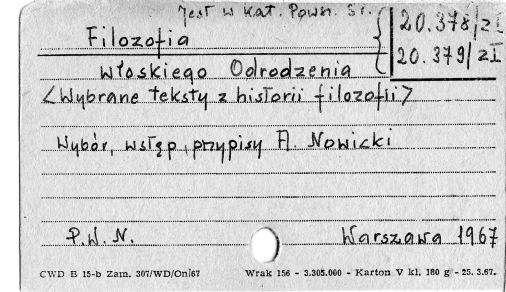 Jest w Kat. Powsz. Sr.
20.378/z I
Filozofia
20.379/z I
Włoskiego Odrodzenia
<Wybrane teksty z historii filozofii>
Wybór, wstęp, przypisy A. Nowicki
P.W.N. Warszawa 1967
CWD B 15-b Zam. 307/WD/Oni67 Wrak 156 - 3.305.000 - Karton V kl. 180 g - 25. 3.67.